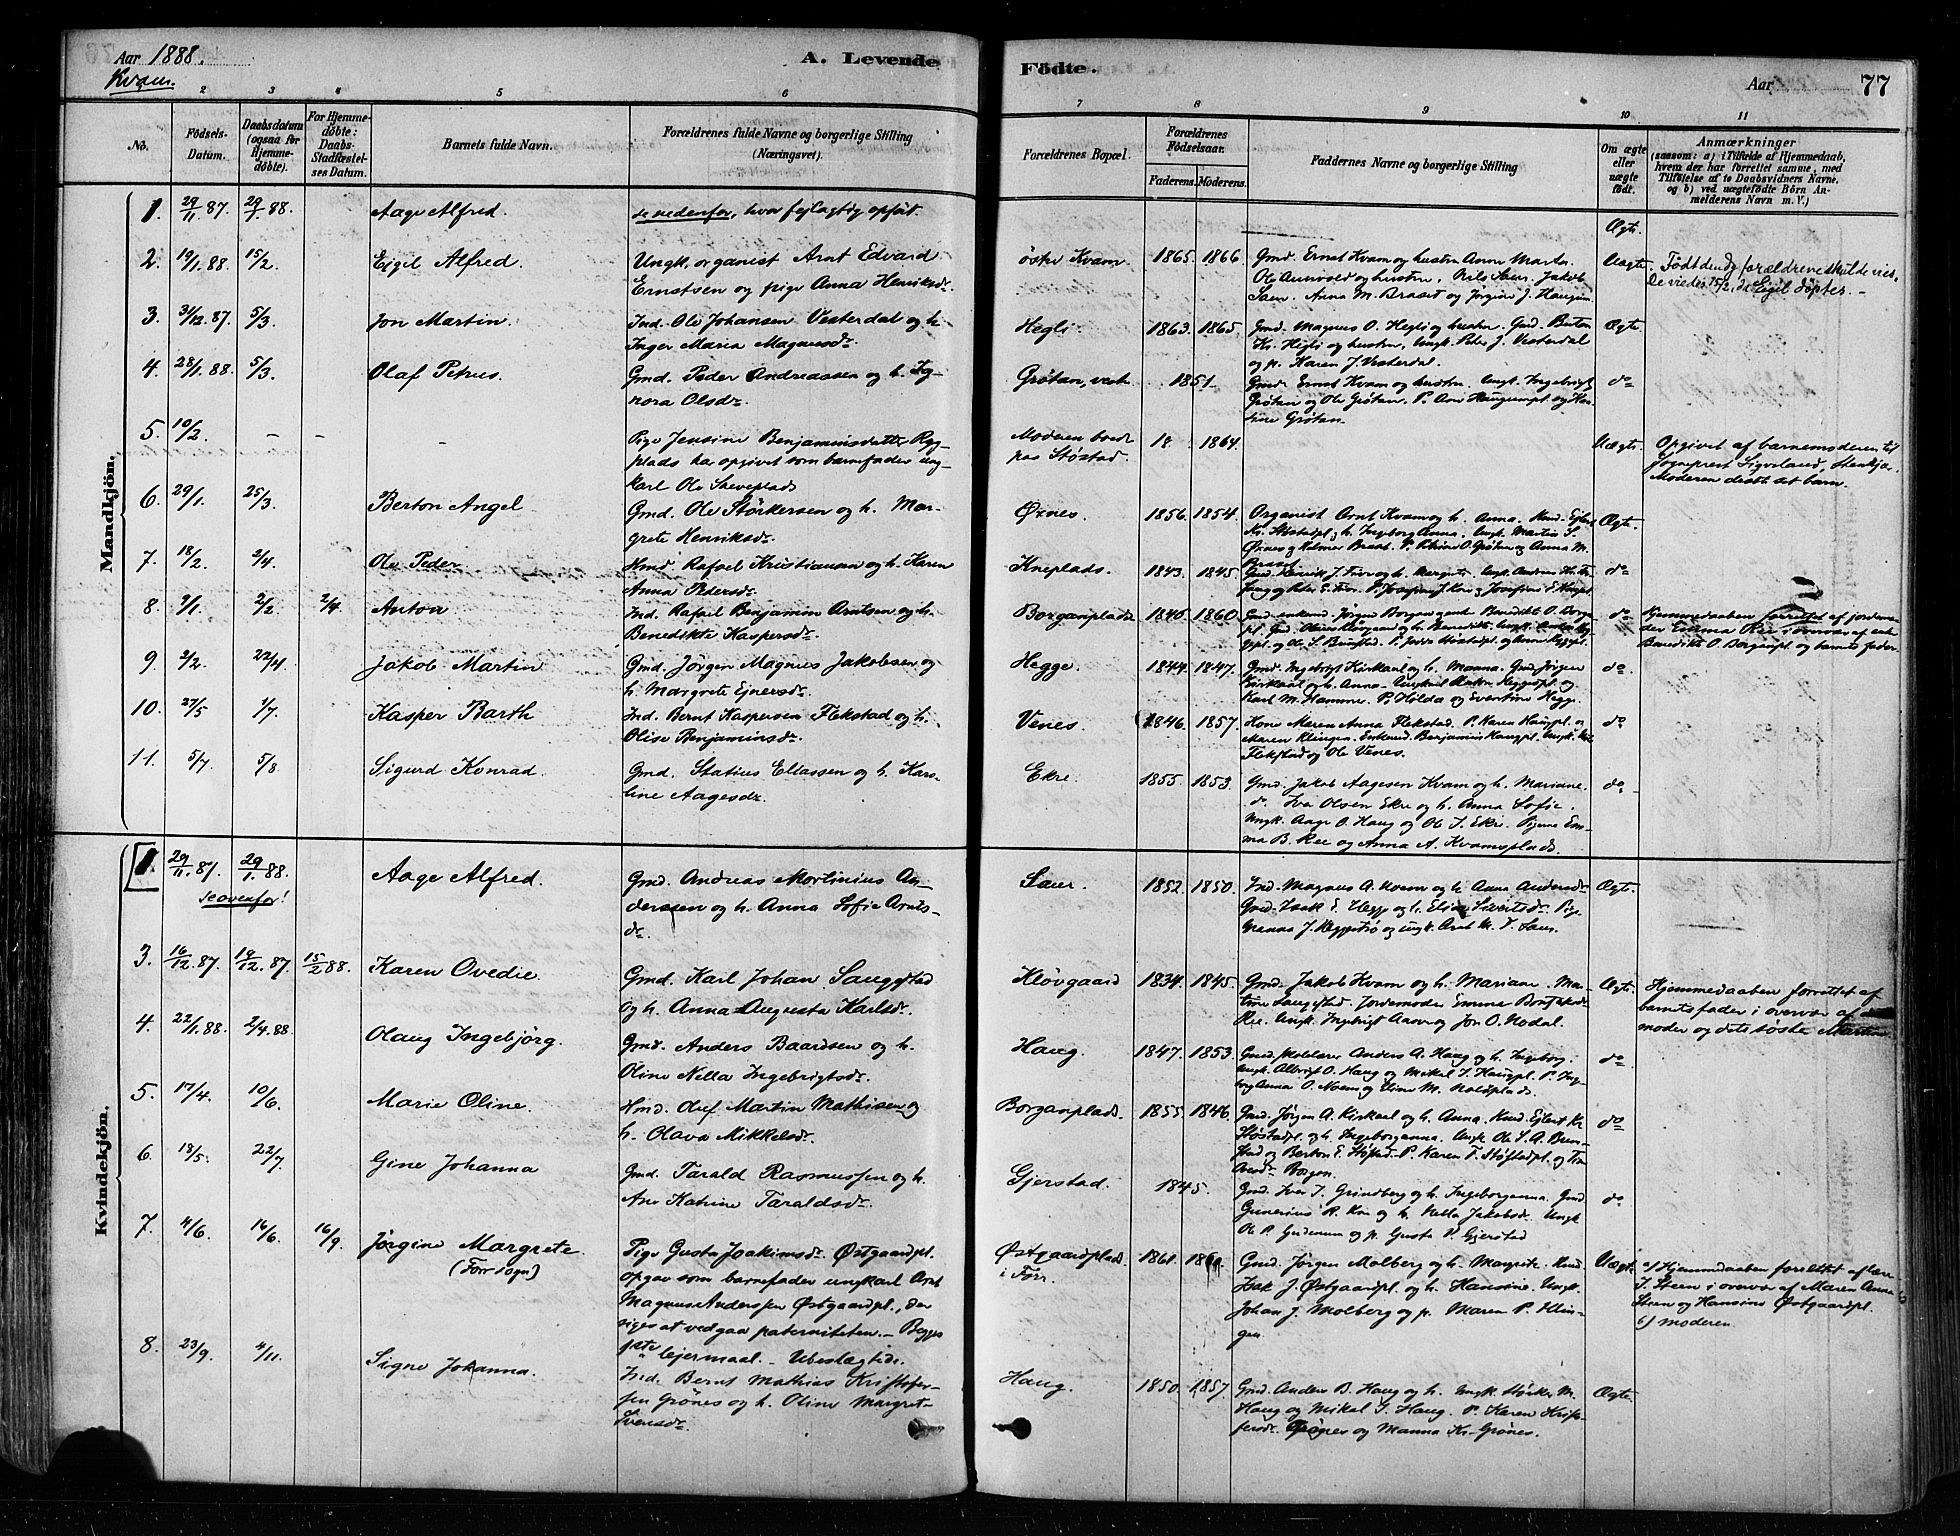 Aar 1888.
Kvam.
A. Levende
Födte.
Aar
77
2 3 4 5 6
7 8 9 10 11
No.
Födsels-Datum.
Daabsdatum (ogsaa for Hjemmedöbte).
For Hjemmedöbte: Daabs-Stadfæstelses Datum.
Barnets fulde Navn.
Forældrenes fulde Navne og borgerlige Stilling (Næringsvei).
Forældrenes Bopæl.
Forældrenes Födselsaar.
Faderens. Moderens.
Faddernes Navne og borgerlige Stilling
Om ægte eller uægte födt.
Anmærkninger
(saasom: a) i Tilfælde af Hjemmedaab, hvem der har forrettet samme, med Tilföielse af to Daabsvidners Navne, og b) ved uægtefödte Börn Anmelderens Navn m. V.)
Mandkjön.
1. 29/11 87. 29/1 88. Aage Alfred. se nedenfor, hvor feilagtig opført. Ægte.
2. 19/1 88. 15/2. Eigil Alfred. Ungk. organist Arnt Edvard
Ernstsen og pige Anna Henriksdr.
østre Kvam 1865. 1866. Gmd. Ernst Kvam og hustru Anne Marta.
Saem. Anna M. Braset og Jørgine J. Haugum.
Uægte. Født da forældrene skulde vies.
De viedes 15/2, da Eigil døptes.
3. 31/12 87. 5/3. Jon Martin. Ind. Ole Johansen Vesterdal og h.
Inger Maria Magnusdr.
Hegli. 1863. 1865. Gmd. Magnus O. Hegli og hustru. Gmd. Berton
Kr. Hegli og hustru, ungk. Peter J. Vesterdal
og p. Karen J. Vesterdal. Ægte
4. 28/1 88. 5/3. Olaf Petrus. Gmd. Peder Andreassen og h. Ig-
nora Olsdr.
Grøtan, vestre 1851. Gmd. Ernst Kvam og hustru. Ungk. Ingebrigt
Grøtan og Ole Grøtan. P. Ane Haugumpl. og Ka-
rine Grøtan. do
5. 10/2. - - - Pige Jensine Benjaminsdatter Ryg-
plads har opgivet som barnefader ung-
karl Ole Skeveplads
Moderen boede
paa Støstad. 18 1864. Uægte. Opgivet af barnemoderen til
Sogneprest Sigvaland, Stenkjær.
Moderen disbt set barn.
6. 29/1. 25/3. Berton Angel Gmd. Ole Størkersen og h. Mar-
grete Henriksdr.
Øxnes. 1856. 1854. Organist Arnt Kvam og h. Anna. Kmd. Ejlert
Kr. Støstadpl. h. Ingeborg Anna. Ungk. Martin S.
Øxnes og Halmer Braset. P. Oline O. Grøtan og Anna M.
Braset. Ægte.
7. 18/2. 2/4. Ole Peder. Hmd. Rafael Kristiansen og h. Karen
Anna Pedersdr.
Kneplads. 1843. 1845. do
8. 2/1. 2/2. 2/4. Anton Ind. Rafael Benjamin Arntsen og h.
Benedikte Kaspersdr.
Borganplads 1846 1860. do Hjemmedaaben forrettet af jordemo-
der Emma Ree i overvær af enke
Benedikte O. Borganpl. og barnets fader.
9. 2/2. 22/4. Jakob Martin Gmd. Jörgen Magnus Jakobsen og
h. Margrete Ejnersdr.
Hegge. 1844. 1847. Gmd. Ingebrigt Kirkaal og h. Manna. Gmd. Jørgen
Kirkaal og h. Anna. Ungkarl Anton Heggepl. og
Karl M. Hammer. P. Hilda og Evertine Hegge. do
10. 27/5 1/7. Kasper Barth Ind. Bernt Kaspersen Flekstad og h.
Olise Benjaminsdr.
Venes 1846. 1857. Kone Maren Anna Flekstad. P. Karen Haugpl. og
Maren Klingen. Enkemd. Benjamin Haugpl. Ungk.
Flekstad og Ole Venes. do
11. 5/7 5/8 Sigurd Konrad. Gmd. Statius Eliassen og h. Karo-
line Aagesdr.
Ekre. 1855. 1853. Gmd. Jakob Aagesen Kvam og h. Mariane.
do. Iver Olsen Ekre og h. Anna Sofie.
Ungk. Aage O. Haug og Ole I. Ekre. Pigerne Em-
ma B. Ree og Anna A. Kvamsplads. do
Kvindekjön.
1. 29/11 87. 29/1. 88. Aage Alfred. Gmd. Andreas Mortinius An-
se ovenfor!
derssen og h. Anna Sofie Arnts-
dr.
Saur. 1852. 1850. Ind. Magnus A. Kvam og h. Anna Andersdr.
Gmd. Isak E. Hegge og h. Elisa Sivertsdr. Pige
Manna J. Heggestrø og ungk. Arnt M. J. Saur. Ægte.
3. 16/12. 87. 19/12. 87. 15/2 88. Karen Ovedie Gmd. Karl Johan Saugstad
og h. Anna Augusta Karlsdr.
Kløvgaard 1834. 1845. Gmd. Jakob Kvam og h. Mariane. Ma-
rtine Saugstad. Jordemoder Emma Benjaminsdr
Ree. Ungk. Ingebrigt Aasve og Jon O. Nodal. Ægte.
Hjemmedaaben forrettet af
barnets fader i overvær af dets
moder og dets søster Martine
4. 22/1. 88. 2/4. 88. Olaug Ingebjörg. Gmd. Anders Baardsen og h.
Oline Nella Ingebrigtsdr.
Haug. 1847. 1853. Gmd. skolelærer Anders A. Haug og h. Ingeborg.
Ungk. Albrigt O. Haug og Mikal I. Haugpl. P. Inge-
borg Anna O. Noem og Stine M. Holdplads. do
5. 17/4. 10/6. Marie Oline. Hmd. Oluf Martin Mathisen og
h. Olava Mikkelsdr.
Borganplads. 1855. 1846. Gmd. Jørgen A. Kirkaal og h. Anna. Kmd. Ejlert Kr.
Støstadpl. og h. Ingeborganna. Ungk. Ole S. A. Bruem-
stad og Berton E. Støstad. P. Karen T. Støstadpl. og
Borgen. do
6. 18/5. 22/7 Gine Johanna Gmd. Tarald Rasmussen og h.
Ane Katrine Taraldsdr.
Gjerstad. 1845. Gmd. Iver I. Grindberg og h. Ingeborganna. Gmd.
Gunerius R. Kne og h. Nella Jakobsdr. Ungk
Ole P. Gudenum og p. Gusta P. Gjerstad do
7. 4/6. 16/6. 16/9. Jørgine Margrete. Pige Gusta Joakimsdr. Østgaardpl.
(Forr sogn)
opgav som barnefader ungkarl Arnt
Magnus Anderssen Østgaardpl., der
siges at vedgaa paterniteten. — Begges
1ste lejermaal. — Ubeslægtede.
Østgaardplads
i Forr. 1861. 1861. Gmd. Jörgen Molberg og h. Margrete. Kmd.
Isak J. Østgaardpl. og h. Hansine. Ungk.
Johan J. Molberg og p. Maren P. Klin-
gen
Uægte. a) Hjemmedaaben forrettet af lærer
J. Steen i overvær af Maren Anna
Steen og Hansine Østgaardpl.
b) moderen.
8. 23/9. 4/11. Signe Johanna. Ind. Bernt Mathias Kristofer-
sen Grönes og h. Oline Margret-
Svensdr.
Haug. 1850. 1857. Gmd. Anders B. Haug og h. Ungk. Størker M.
Haug og Mikal I. Haug. P. Karen Kristo-
fersdr. Grönes og Manna Kr. Grönes. Ægte